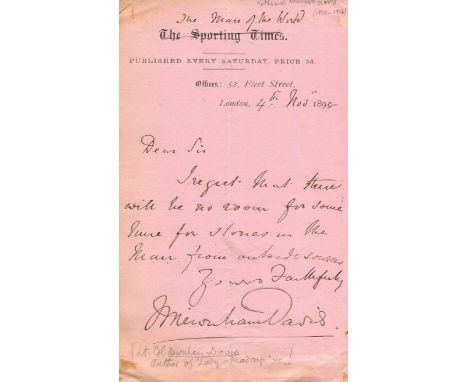 Nathaniel Newnham-Davis
(1854-1917)
The Man of the World
The Sporting Times.
PUBLISHED EVERY SATURDAY, PRICE 2d.
Offices: 52, Fleet Street,
London, 4th Nov 1890
Dear Sir
I regret that there
will be no room for some
time for stories in the
Man from outside sources
Yours faithfully
Newnham Davis.
[Lt. Col. Newnham-Davis
author of "Lady Madcap"